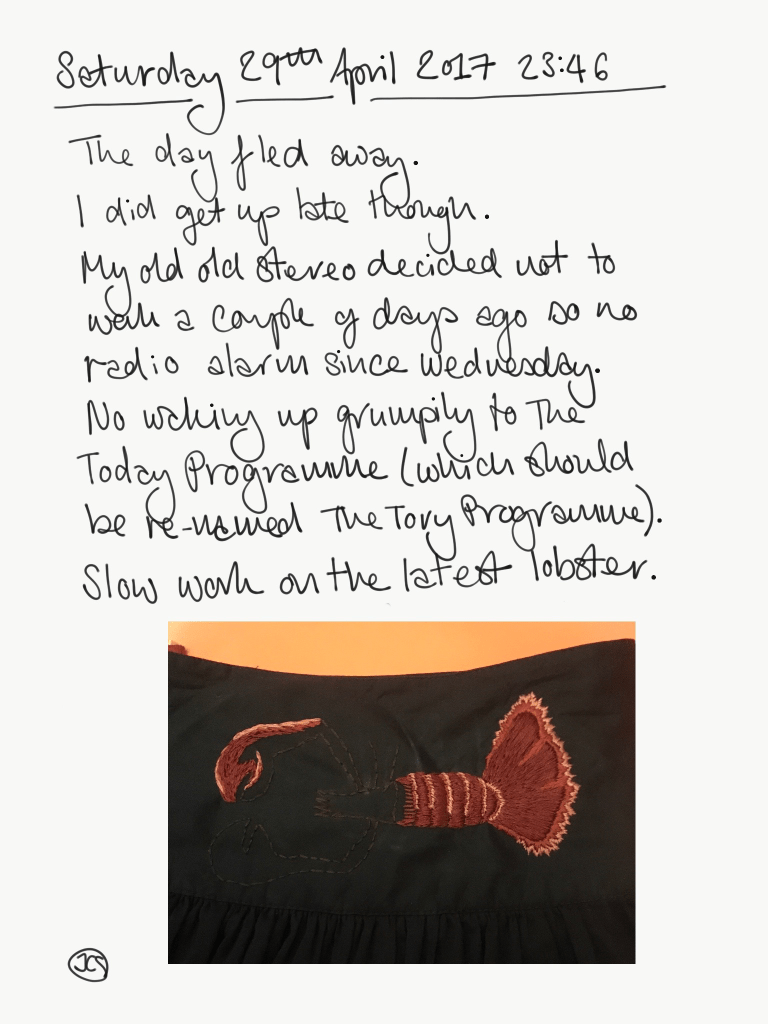 Saturday 29th April 2017 23:46
The day fled away.
I did get up late though.
My old old stereo decided not to
work a couple of days ago so no
radio alarm since Wednesday.
No waking up grumpily to The
Today Programme (which should
be re-named The Tory Programme).
Slow work on the latest lobster.
JCS